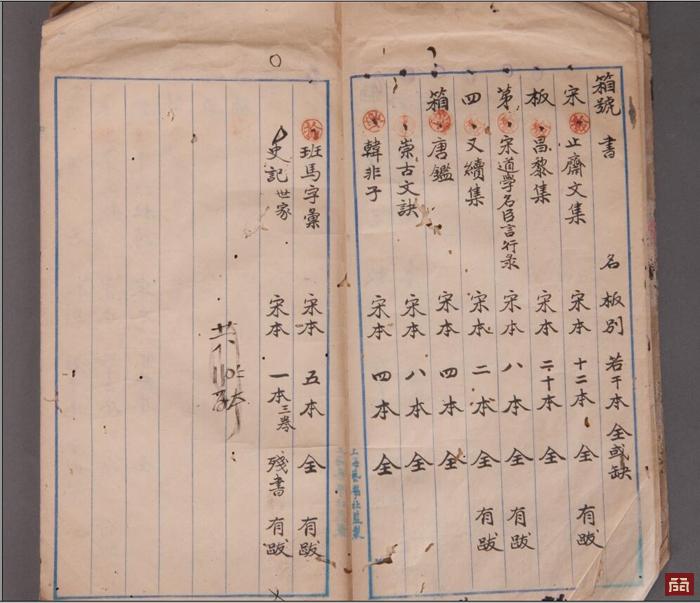 箱號 書 名 板別 若干本 全或缺
宋 止齋文集 宋本 十二本 全 有跋
板 昌黎集 宋本 二十本 全
第 宋道學名臣言行录 宋本 八本 全 有跋
四 又續集 宋本 二本 全 有跋
箱 唐鑑 宋本 四本 全
崇古文訣 宋本 八本 全
韓非子 宋本 四本 全
班馬字彙 宋本 五本 全 有跋
史記世家 宋本 一本三卷 殘書 有跋